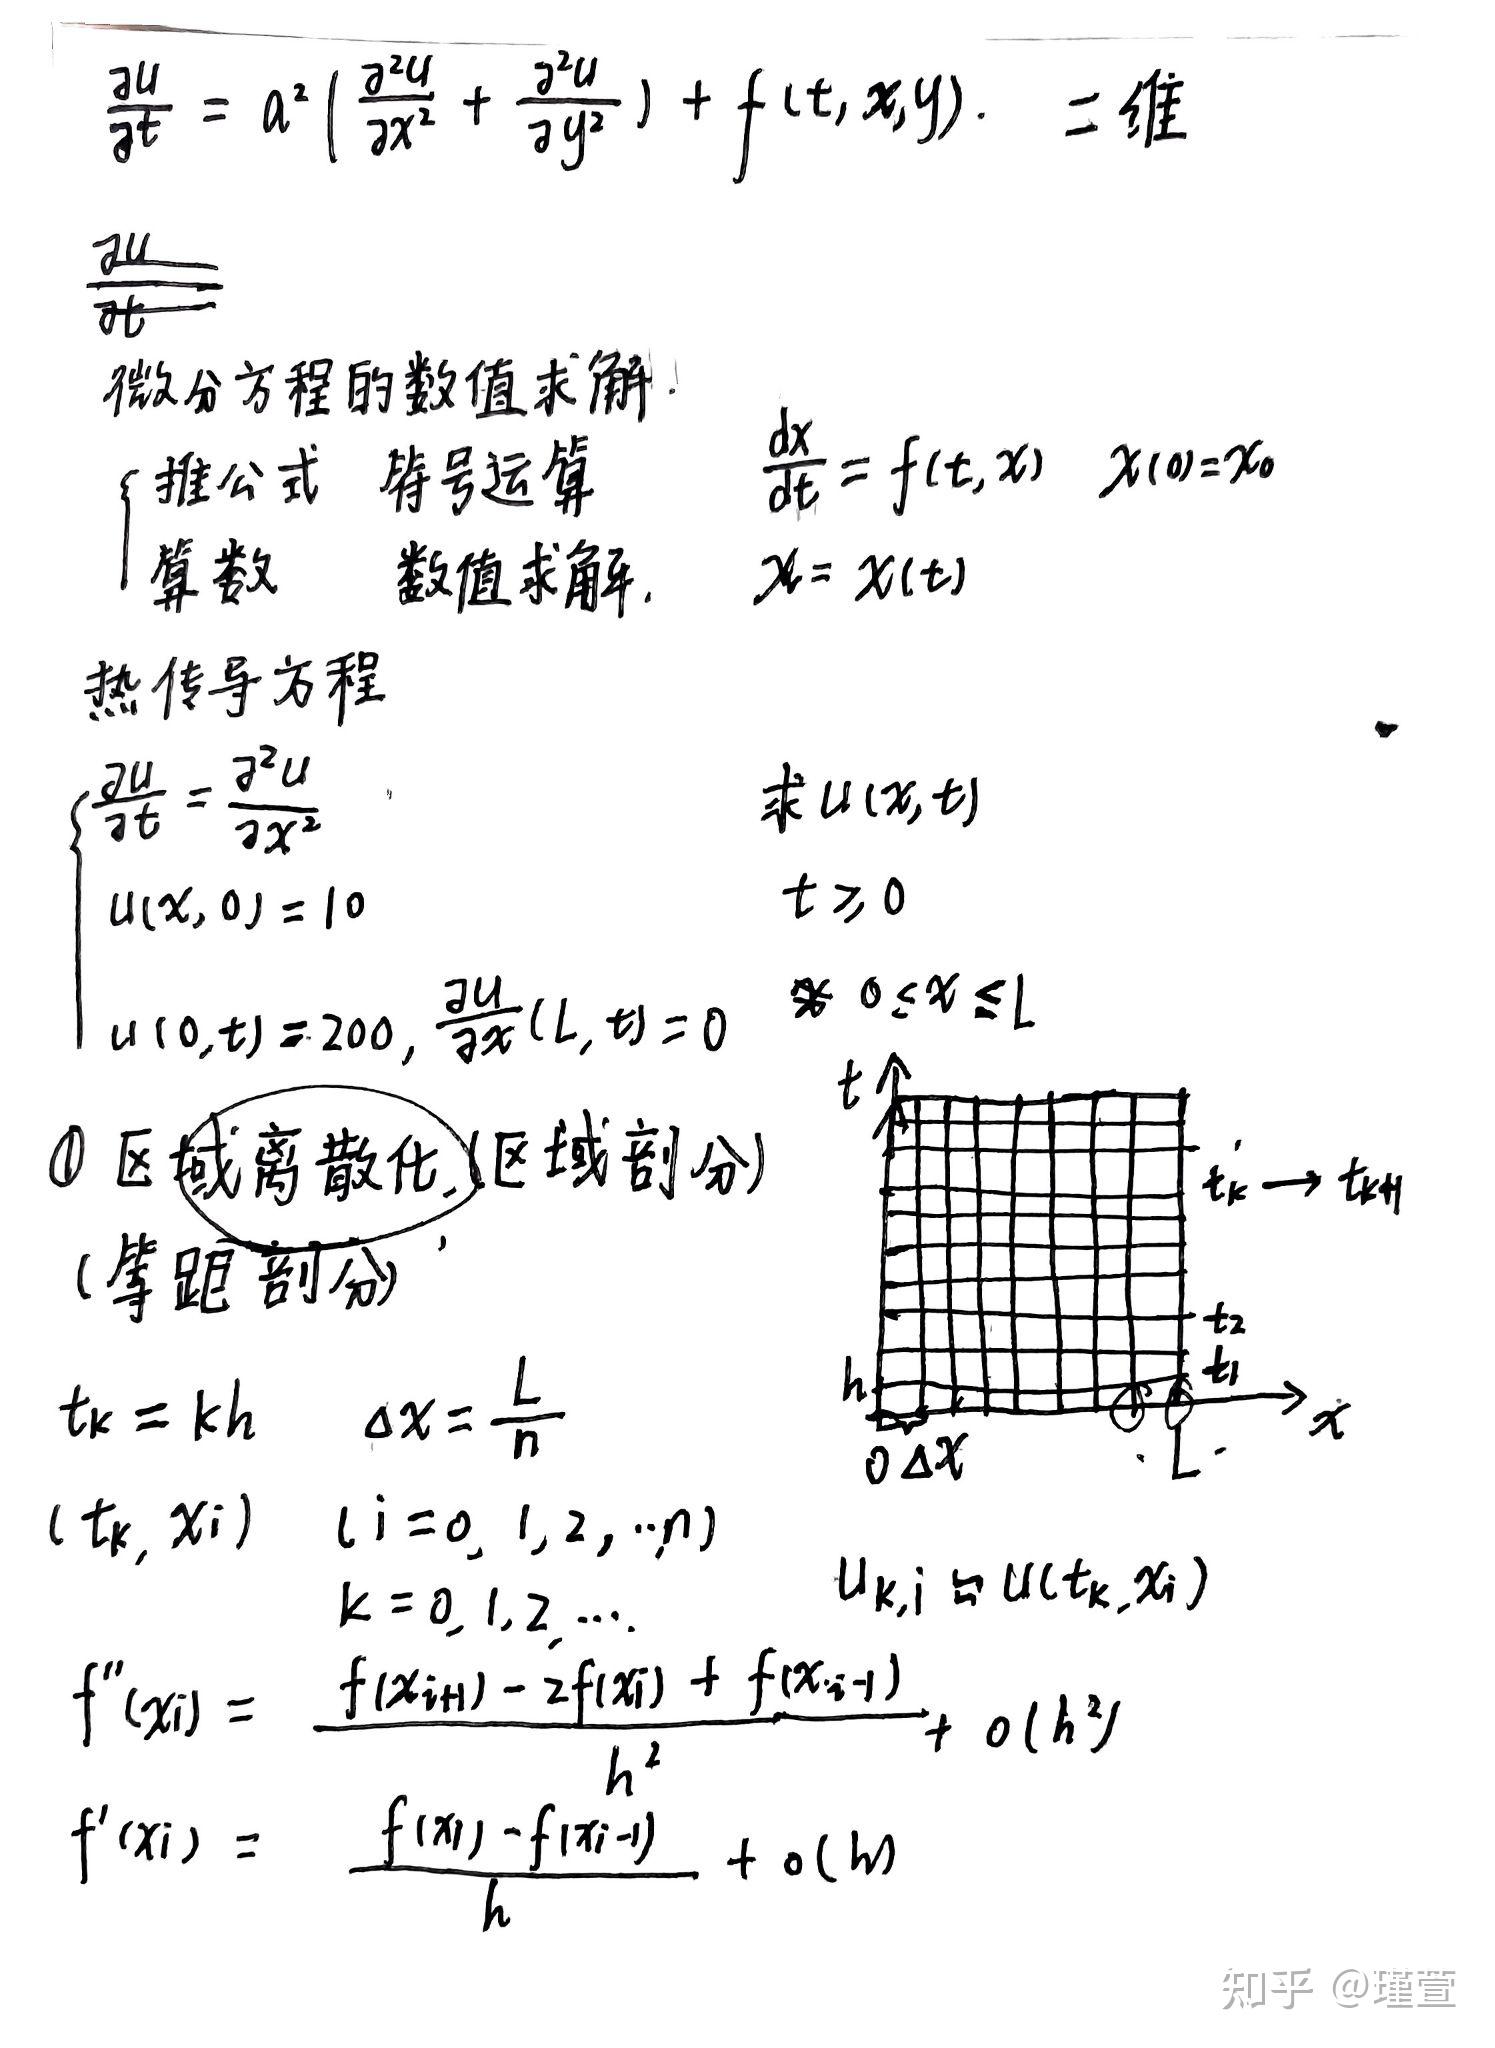 ∂u/∂t = a²(∂²u/∂x² + ∂²u/∂y²) + f(t, x, y). 二维
∂u/∂t
微分方程的数值求解.
推公式 符号运算 dx/dt = f(t, x) x(0)=x₀
算数 数值求解. x = x(t)
热传导方程
∂u/∂t = ∂²u/∂x² 求u(x,t)
u(x, 0) = 10 t ≥ 0
u(0,t) = 200, ∂u/∂x(L, t) = 0 0 ≤ x ≤ L
① 区域离散化 (区域剖分)
(等距剖分)
t
tₖ → tₖ₊₁
t₂
t₁
h
x
0 Δx L
tₖ = kh Δx = L/n
(tₖ, xᵢ) (i = 0, 1, 2, ..., n)
k = 0, 1, 2, ... uₖ,ᵢ ≒ u(tₖ, xᵢ)
f''(xᵢ) = (f(xᵢ₊₁) - 2f(xᵢ) + f(xᵢ₋₁))/h² + o(h²)
f'(xᵢ) = (f(xᵢ) - f(xᵢ₋₁))/h + o(h)
知乎 @瑾萱